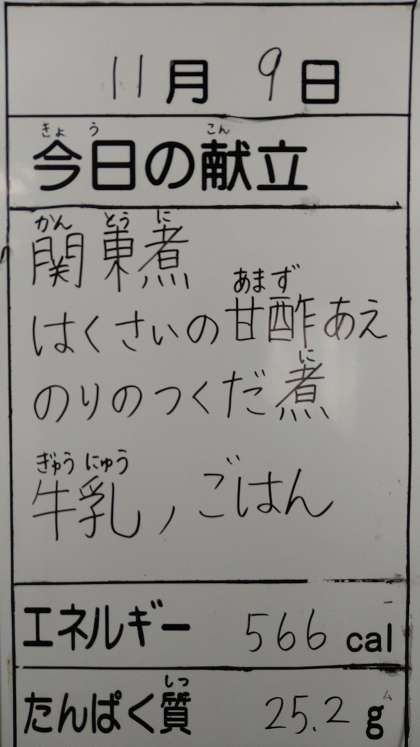 11月 9日
きょう こん
今日の献立
かん とう に
関東煮
あまず
はくさいの甘酢あえ
に
のりのつくだ煮
ぎゅうにゅう
牛乳、ごはん
エネルギー 566 cal
しつ
たんぱく質 25.2 g